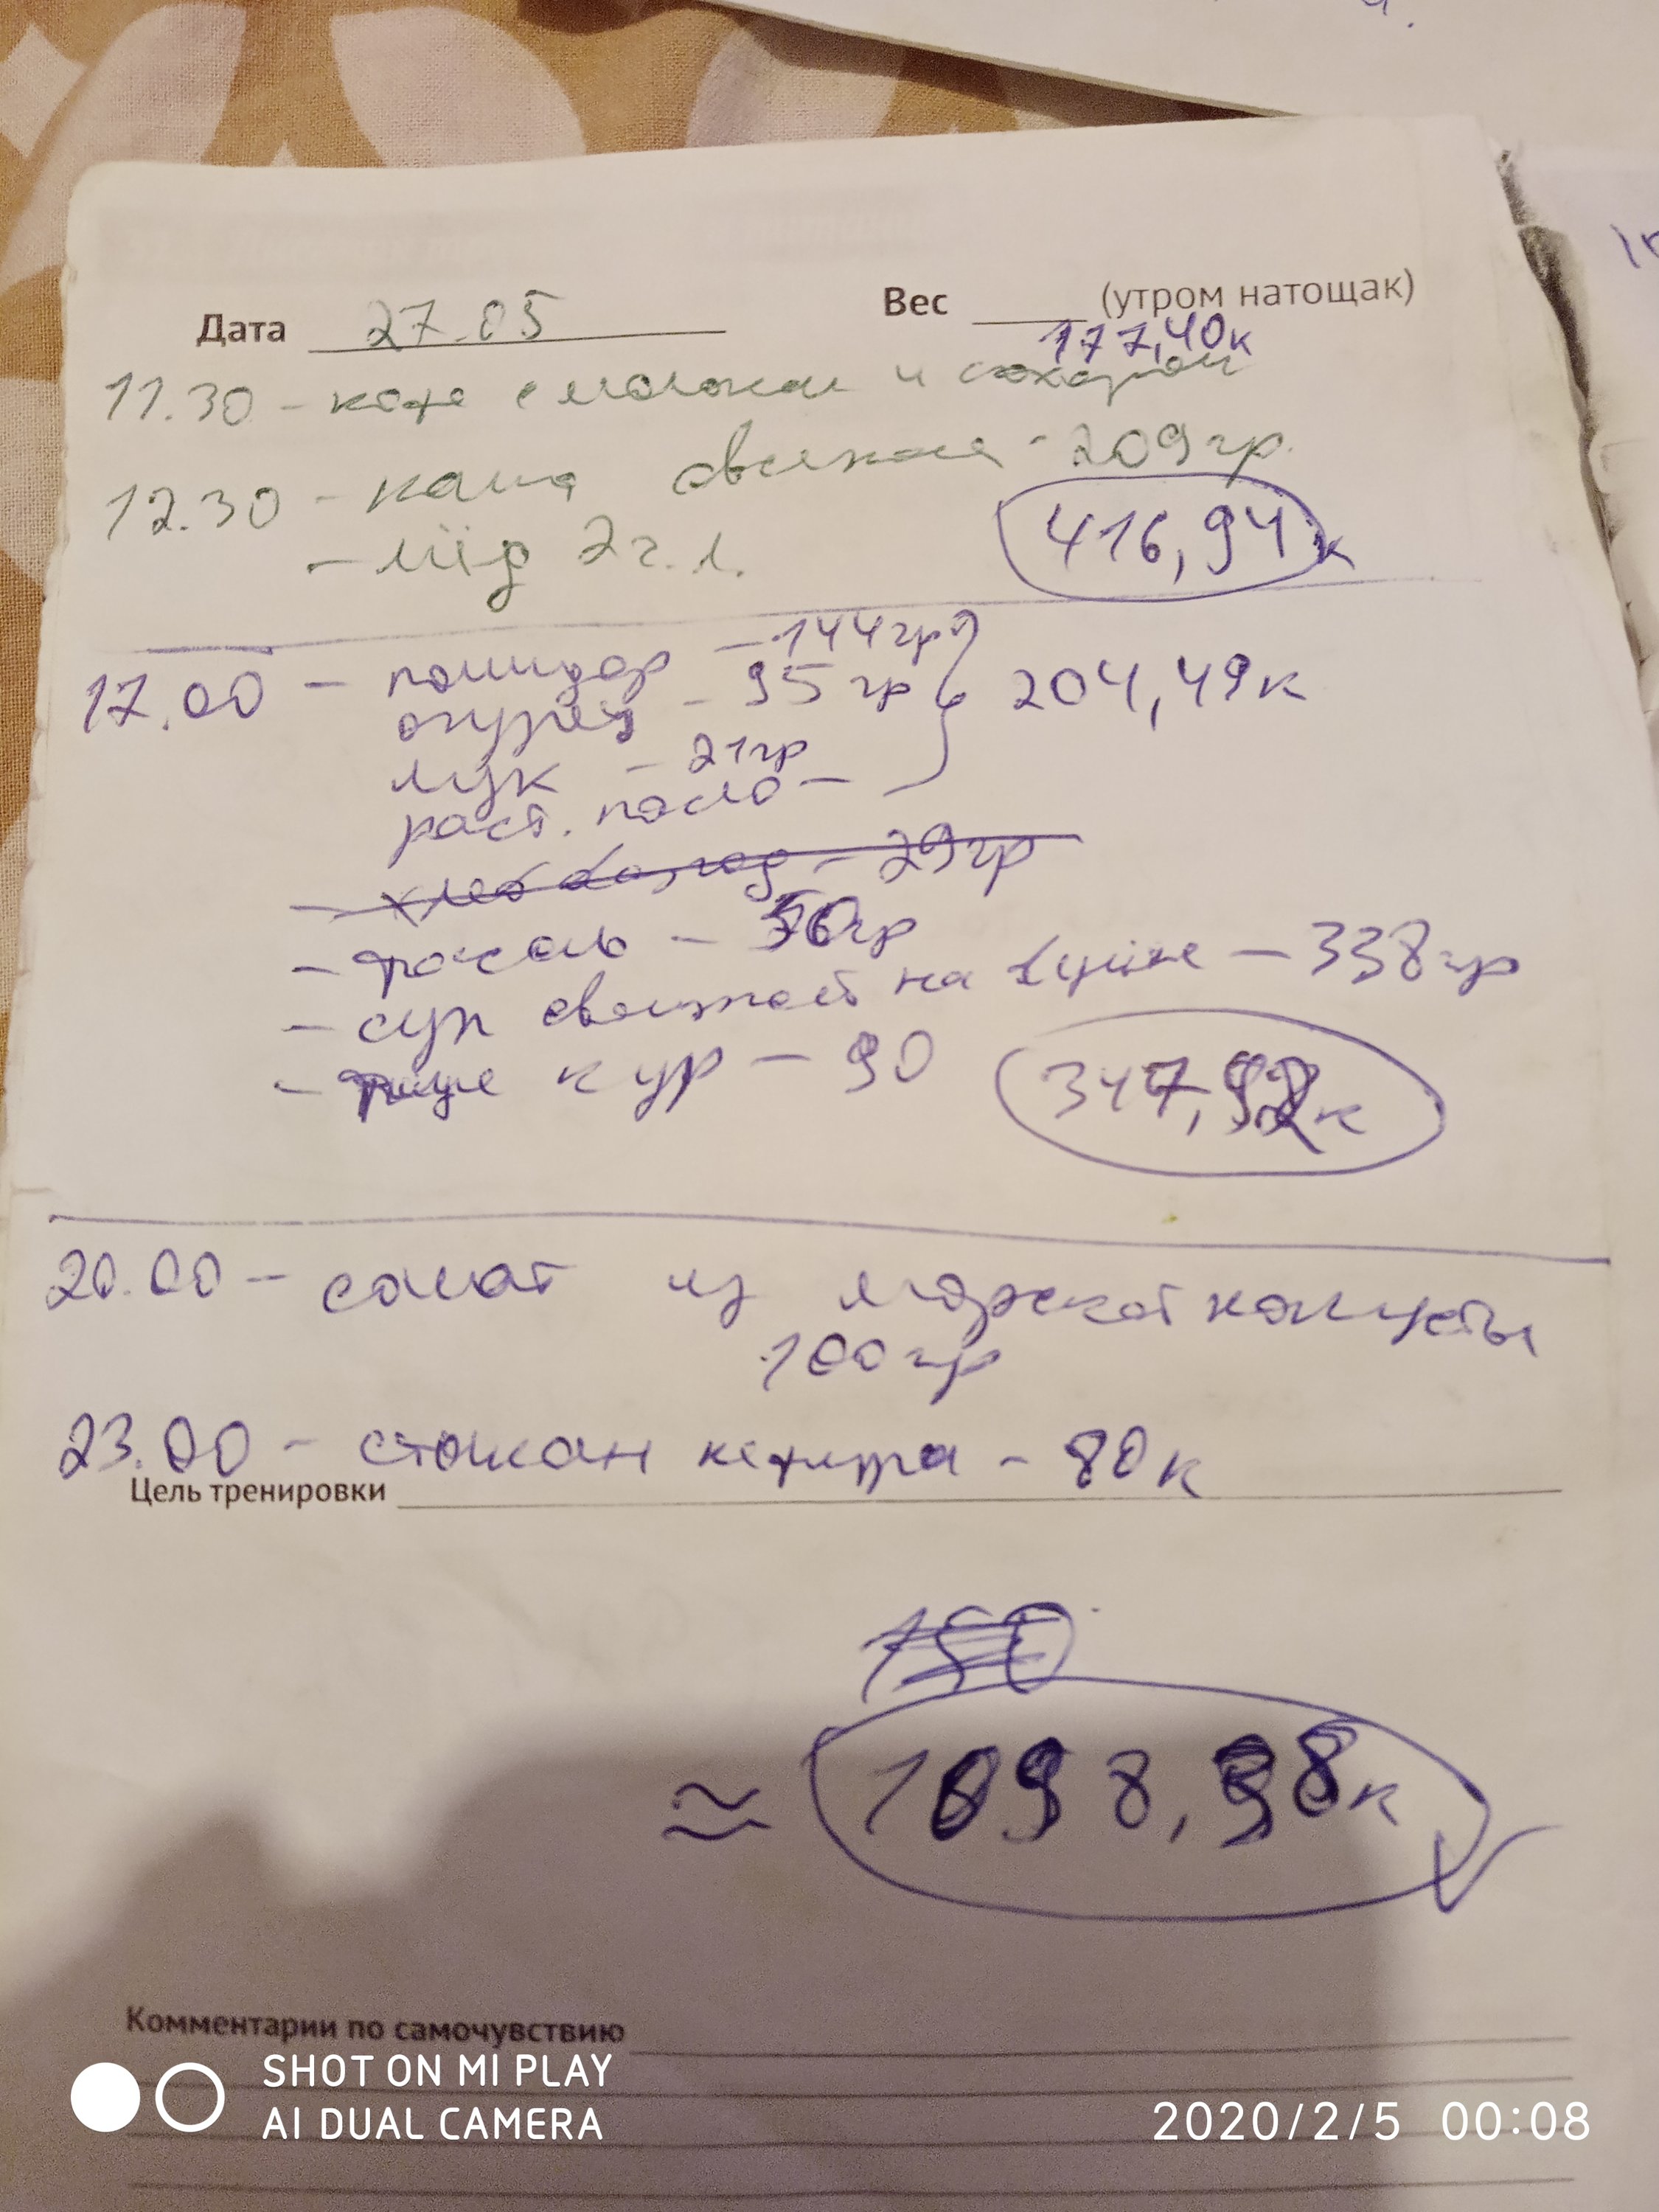 Дата 27.05 Вес (утром натощак)
177,40к
11.30 - кофе с молоком и сахаром
12.30 - каша овсяная - 209 гр.
- мёд 2 г. л.
416,94к
17.00 - помидор - 144гр
огурец - 95 гр 204,49к
лук - 21гр
раст. масло -
- хлеб - 29гр
- фасоль - 50гр
- суп овсяной на - 338гр
- кур - 90 347,92к
20.00 - салат из морской капусты
100гр
23.00 - стакан кефира - 80к
Цель тренировки
150
≈ 1098,98к
Комментарии по самочувствию
SHOT ON MI PLAY
AI DUAL CAMERA
2020/2/5 00:08